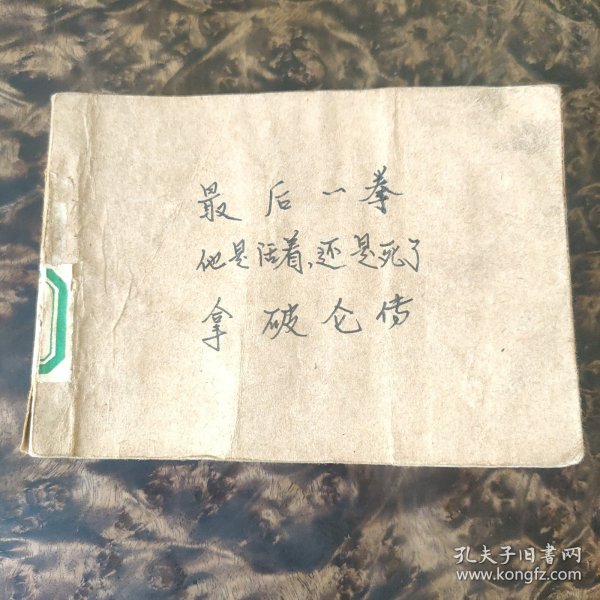 最后一拳
他是活着,还是死了
拿破仑传
孔夫子旧书网
www.kongfz.com